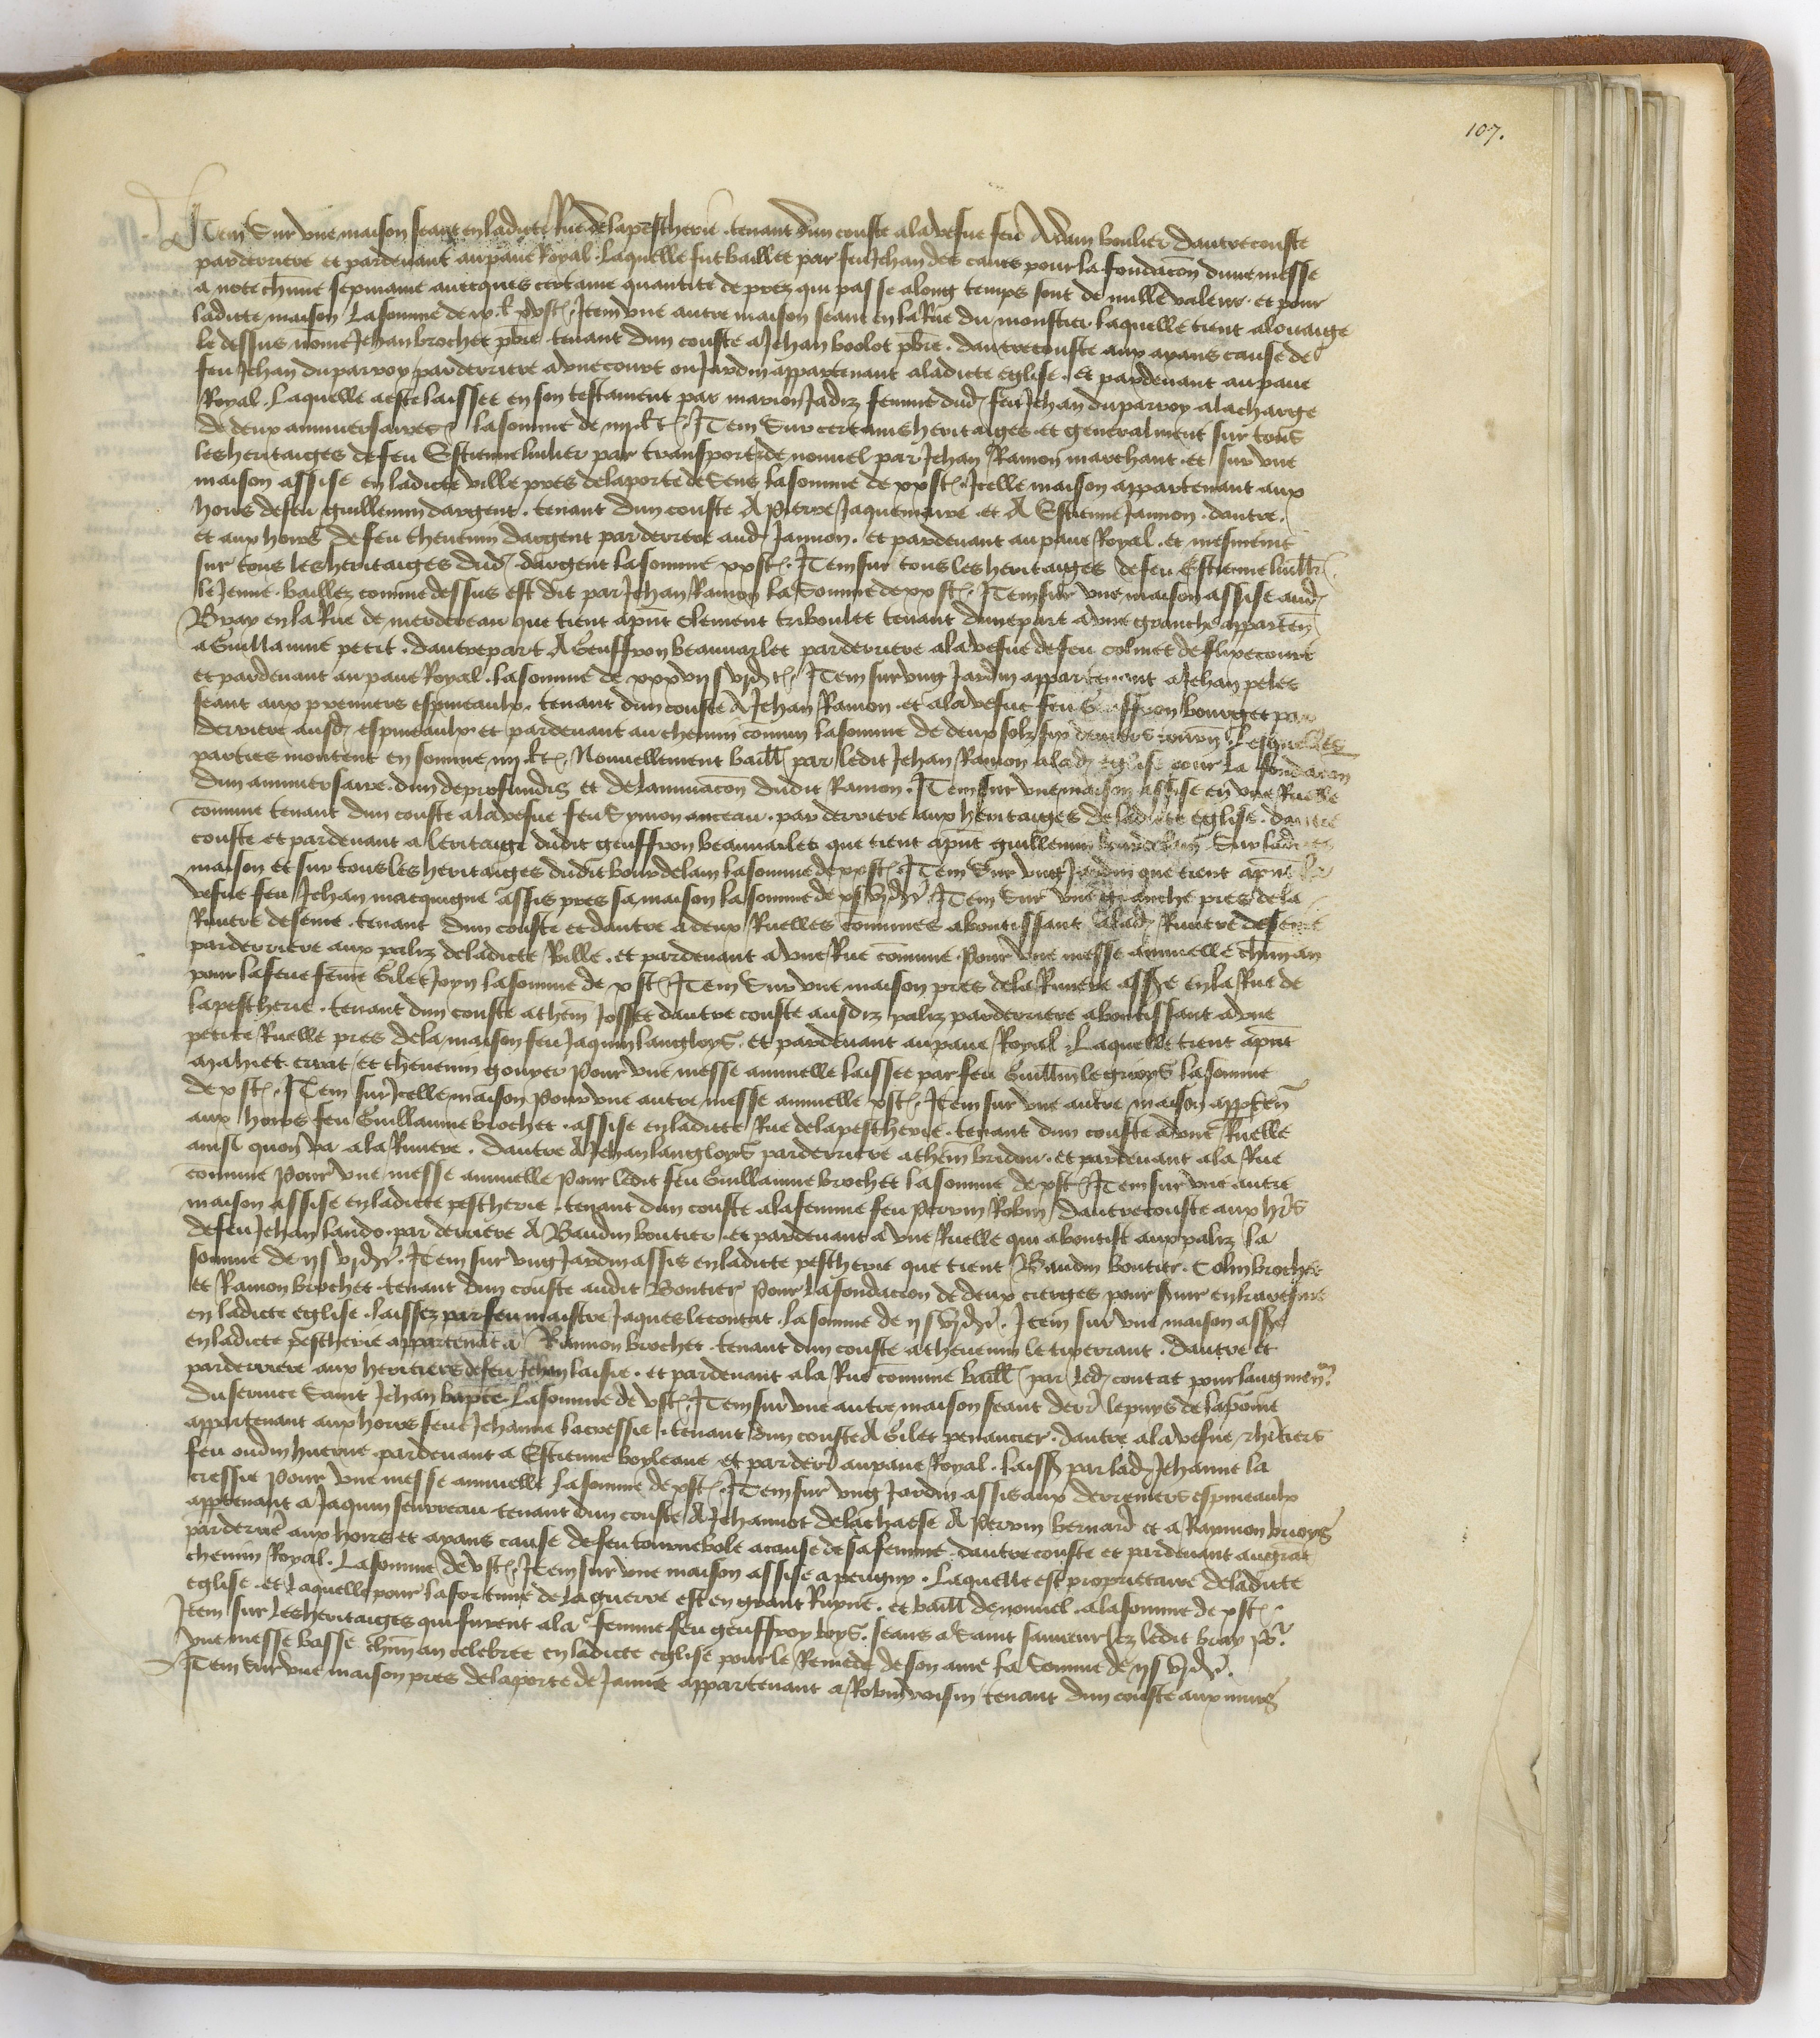 107.
Item Sur une maison seant en ladicte Rue de la pescherie . tenant dun couste a la vefue feu Adam boulier dautre couste
par derriere et par deuant au paue Royal . Laquelle fut baillee par feu Jehan des caues pour la fondacōn dune messe
a note chune sepmaine auecques certaine quantite de prez qui passe a long temps sont de nulle valeur . et pour
ladicte maison La somme de xvst. Item une autre maison seant en la Rue du monstier laquelle tient a louaige
le dessus nōme Jehan brochet pbre . tenant dun couste a Jehan boolot pbre . dautre couste aux ayans cause de
feu Jehan du parroy par derriere a une court ou Jardin appartenant a ladicte eglise . et par deuant au paue
Royal . Laquelle a este laissee en son testament par marion Jadiz femme dud feu Jehan du parroy a la charge
de deux anniuersaires la somme de iiij lt. Item Sur certains heritaiges et generalment sur tous
les heritaiges de feu Estienne lulier par transport de nouuel par Jehan Ramon marchant et sur une
maison assise en ladicte ville pres de la porte de Sens la somme de xxst. Icelle maison appartenant aux
hoirs de feu guillemin dargent . tenant dun couste A pierre Jaquemare et A Estienne Jannon . dautre
et aux hoirs de feu theuenin dargent par derriere aud Jannon . et par deuant au paue Royal . et mesment
sur tous les heritaiges dud dargent la somme xxst. Item sur tous les heritaiges de feu Estienne lull
le Jeune . baillez comme dessus est dit par Jehan Ramon La Somme de xxst. Item sur une maison assise aud
Bray en la Rue de merdereau que tient apnt Clement triboulet tenant dune part a une granche apparten
a Guillaume petit . dautre part A Geuffron beauuarlet par derriere a la vefue de feu colinet de flixecourt
et par deuant au paue Royal . la somme de xxxvijs vjd t. Item sur ung Jardin appartenant a Jehan peles
seant aux premiers espineaulx . tenant dun couste A Jehan Ramon et a la vefue feu Geuffron bourget par
derriere ausd espineaulx et par deuant au chemin cōmun la somme de deux solz six deniers tourn Lesquelles
parties montent en somme iiij lt. Nouuellement baill par ledit Jehan Ramon a lad eglise pour la fondacōn
dun anniuersaire . dun de profundis et de lanuacōn dudit Ramon . Item sur une maison assise en une Ruelle
cōmune tenant dun couste a la vefue feu Symon anceau . par derriere aux heritaiges de ladicte eglise . dautre
couste et par deuant a leritaige dudit geuffron beauuarlet que tient apnt guillemin bourdelain Sur ladicte
maison et sur tous les heritaiges dudit bourdelain la somme de xxst. Item Sur ung Jardin que tient apnt la
vefue feu Jehan macquigne assis pres sa maison la somme de xs vjd Item Sur une granche pres de la
Riuiere de seine . tenant dun couste et dautre a deux Ruelles cōmunes aboutissant a lad Riuiere de seine
par derriere aux palix de ladicte Ville . et par deuant a une Rue cōmune . Pour une messe annuelle chun an
pour la feue feme Gilet Joyn la somme de xst. Item Sur une maison pres de la Riuiere assise en la Rue de
la pescherie . tenant dun couste a them Josset dautre couste ausdiz palix par derriere aboutissant a une
petite Ruelle pres de la maison feu Jaquin langloys . et par deuant au paue Royal . Laquelle tient apnt
Mahiet errat et theuenin gouyer Pour une messe annuelle laissee par feu Guillm legrioys la somme
de xst. Item sur Icelle maison Pour une autre messe annuelle xst. Item sur une autre maison apptēn
aux hoirs feu Guillaume brochet . assise en ladicte Rue de la pescherie . tenant dun couste a une Ruelle
ainsi quon va a la Riuiere . dautre A Jehan langloys par derriere a them bridou . et par deuant a la Rue
cōmune Pour une messe annuelle Pour ledit feu Guillaume brochet la somme de xst. Item sur une autre
maison assise en ladicte pescherie . tenant dun couste a la femme feu Perrin Robin dautre couste aux hrs
de feu Jehan lando . par derriere A Baudin boutier . et par deuant a une Ruelle qui aboutist aux palix la
somme de ijs vjd. Item sur ung Jardin assis en ladicte pescherie que tient Baudin boutier . Colin brochet
et Ramon brochet . tenant dun couste audit Boutier Pour la fondacion de deux cierges pour seruir en karesme
en ladicte eglise . laissez par feu maistre Jaques lecontat . la somme de ijs vjd. Item sur une maison assise
en ladicte pescherie appartenāt a Rammon brochet . tenant dun couste a theuenin le tixerrant . dautre et
par derriere aux heritiers de feu Jehan laisie . et par deuant a la Rue cōmune baill par led contat pour laugmen
du seruice Saint Jehan baptē La somme de vst. Item sur une autre maison seant derr le puys de la pōme
appartenant aux hoirs feue Jehanne la cressie . tenant dun couste A Gilet penancier . dautre a la vefue et hitiers
feu oudin huerne par deuant a Estienne boyleaue et par derr au paue Royal . laiss par lad Jehanne la
cressie Pour une messe annuelle la somme de xst. Item sur ung Jardin assis aux derreniers espineaulx
apptenant a Jaquin seurreau . tenant dun couste A Jehannot de la chaese A Perrin bernard et a Raymon brioys
par derriē aux hoirs et ayans cause de feu tournebole a cause de sa femme . dautre couste et par deuant au grāt
chemin Royal . La somme de vst. Item sur une maison assise a peugny . Laquelle est proprietaire de ladicte
eglise . et laquelle pour la fortune de la guerre est en grant Ruyne . et baill de nouuel . a la somme de xst.
Item sur les heritaiges qui furent a la femme feu geuffroy boys . seans a Saint sauueur lez ledit bray Pr
une messe basse chun an celebree en ladicte eglise pour le Remede de son ame La Somme de ijs vjd.
Item Sur une maison pres de la porte de Jaunes appartenant a Robin voisin tenant dun couste aux murs